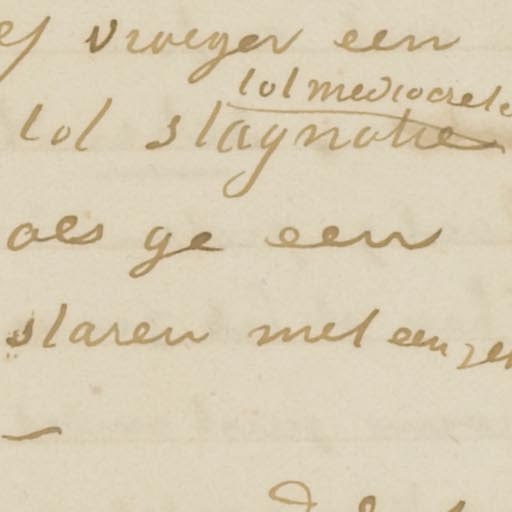 vroeger een
tot mediocrite
tot stagnatie
als ge een
staren met een